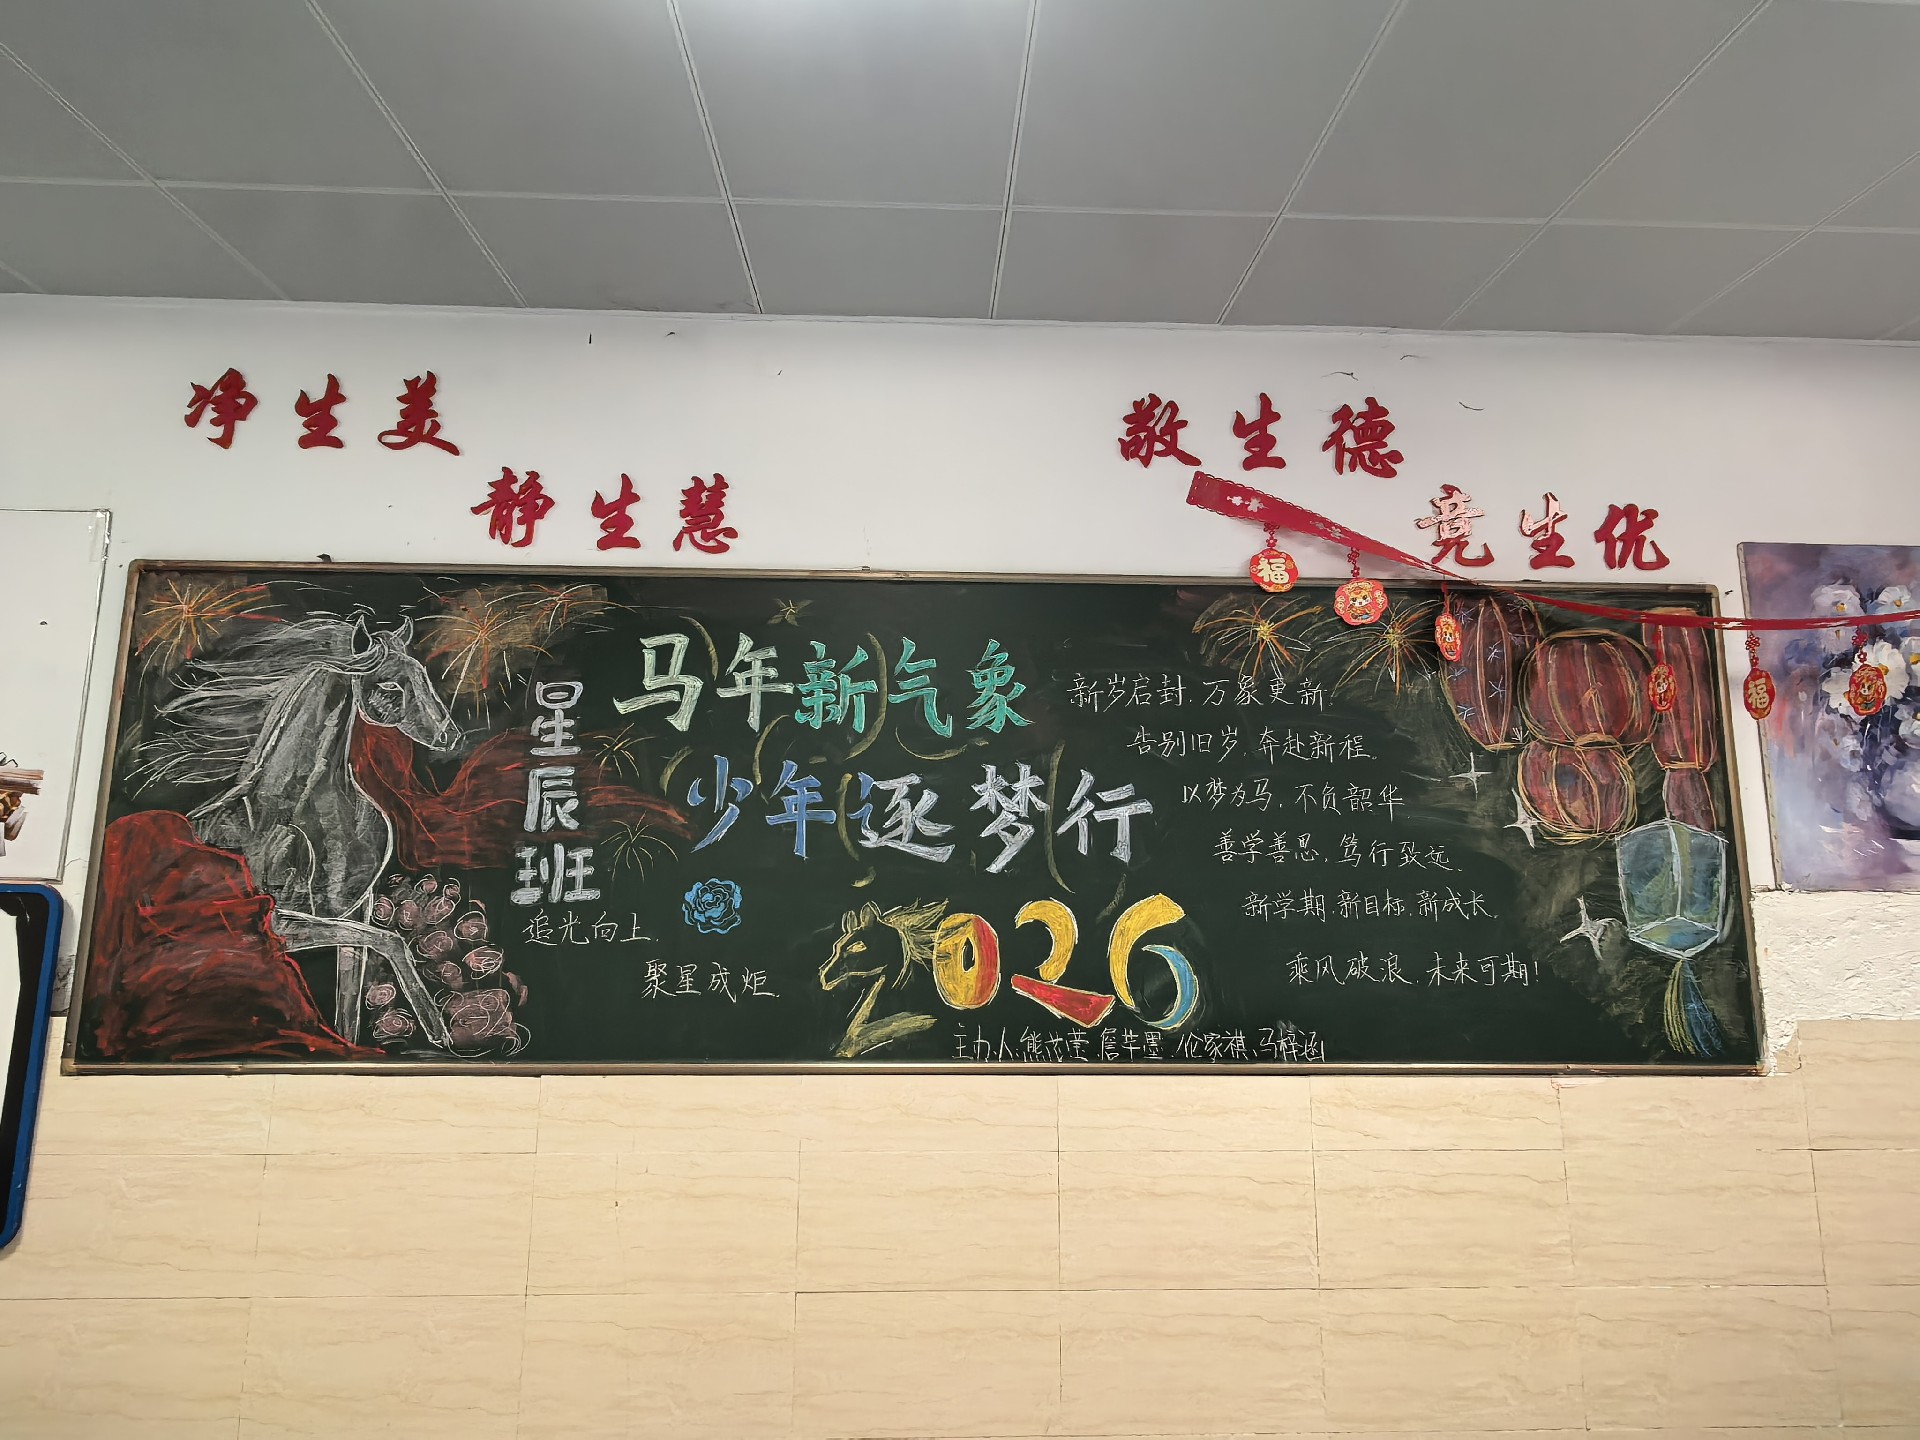 净生美
静生慧
敬生德
竞生优
福
福
星辰班
马年新气象
少年逐梦行
追光向上.
聚星成炬.
2026
新岁启封,万象更新.
告别旧岁,奔赴新程。
以梦为马,不负韶华
善学善思,笃行致远.
新学期,新目标,新成长.
乘风破浪,未来可期!
主办人:熊 莹、詹 墨、 家祺、马梓涵